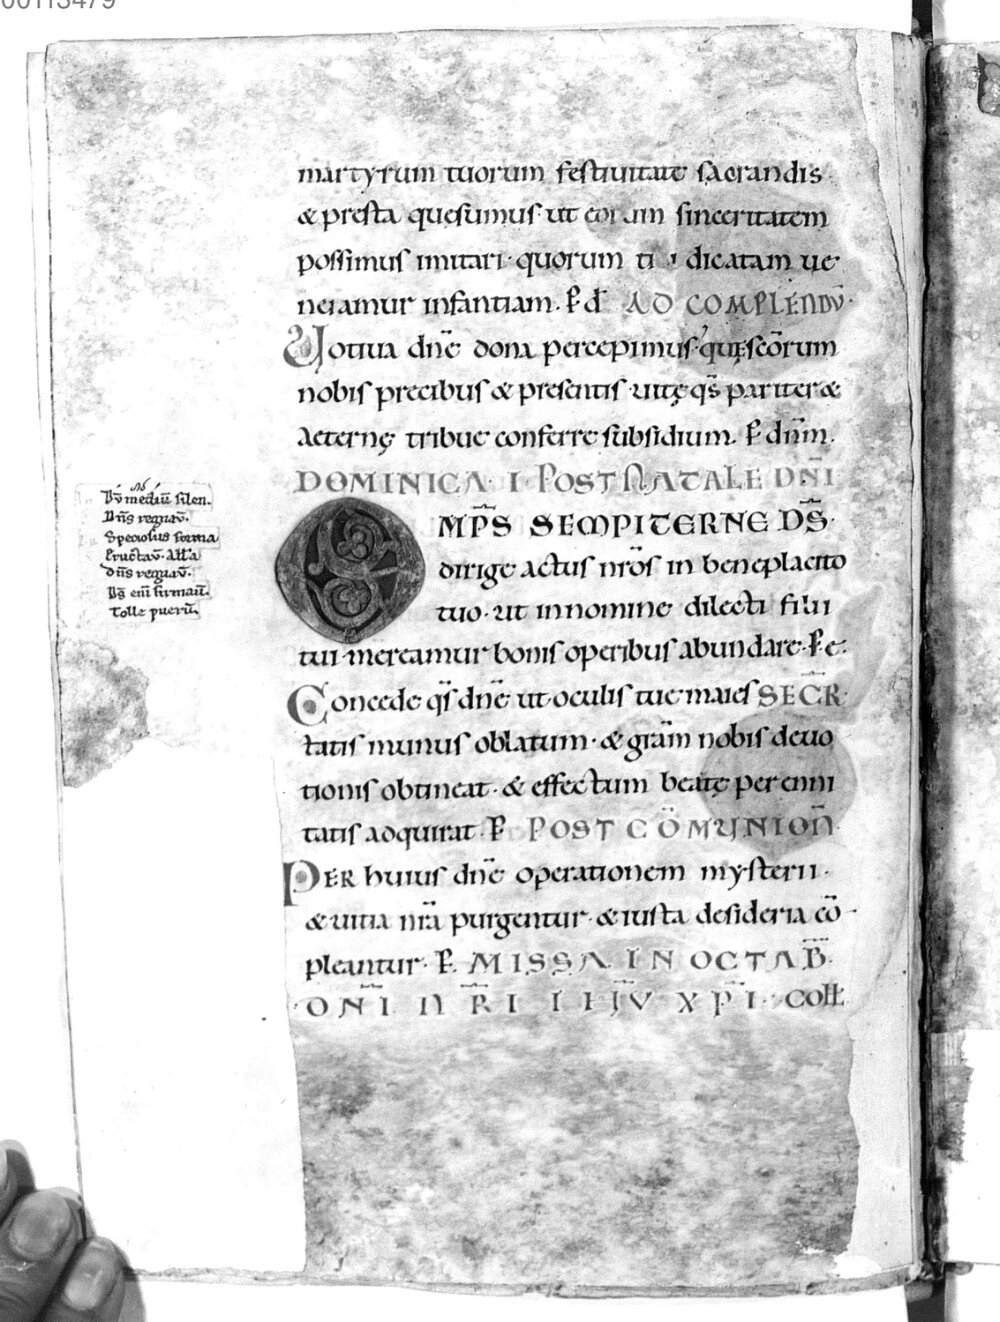 00113479
martyrum tuorum festiuitate sacrandis.
& presta quesumus· ut eorum sinceritatem
possimus imitari· quorum ti dicatam ue
neramur infantiam. P d AD COMPLENDV̄·
Uotiua dn̄e dona percepimus· quę scōrum
nobis precibus & presentis uitę qs̄ pariter &
aeternę tribue conferre subsidium. P dn̄m.
DOMINICA· I· POST NATALE DN̄I
OMP̄S SEMPITERNE DS̄·
dirige actus nr̄os in beneplacito
tuo· ut in nomine dilecti filii
tui mereamur bonis operibus abundare· P e:
Concede qs̄ dn̄e ut oculis tue maies SECR̄·
tatis munus oblatum· & grām nobis deuo
tionis obtineat· & effectum beatę perenni
tatis adquirat· P POST CŌMVNION̄·
PER huius dn̄e operationem mysterii·
& uitia nr̄a purgentur· & iusta desideria cō-
pleantur· P. MISSA IN OCTAB̄·
DN̄I N̄R̄I IHV̄ XP̄I· coll̄
Dū mediū silen.
Dn̄s regnau̅.
Speciosus forma
Eructau̅. All̄a
dn̄s regnau̅.
D̄s eni̅ firmau̅.
Tolle pueru̅.